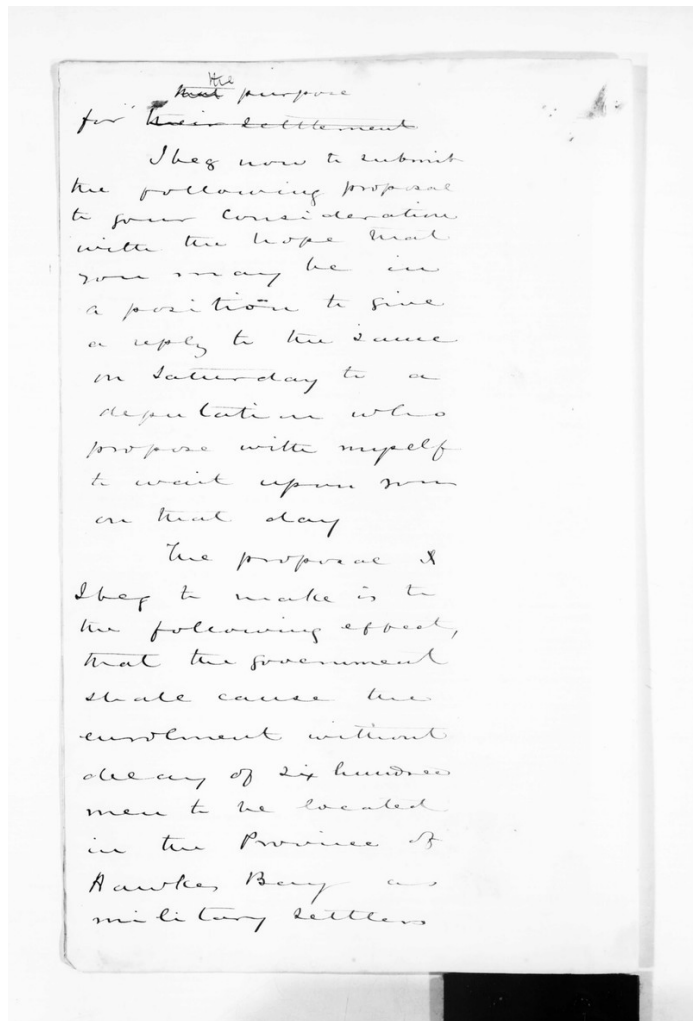 the
that purpose
for their settlement
I beg now to submit
the following proposal
to your consideration
with the hope that
you may be in
a position to give
a reply to the same
on Saturday to a
deputation who
propose with myself
to wait upon you
on that day
The proposal I
I beg to make is to
the following effect,
that the government
shall cause the
enrolment without
delay of six hundred
men to be located
in the Province of
Hawkes Bay as
military settlers